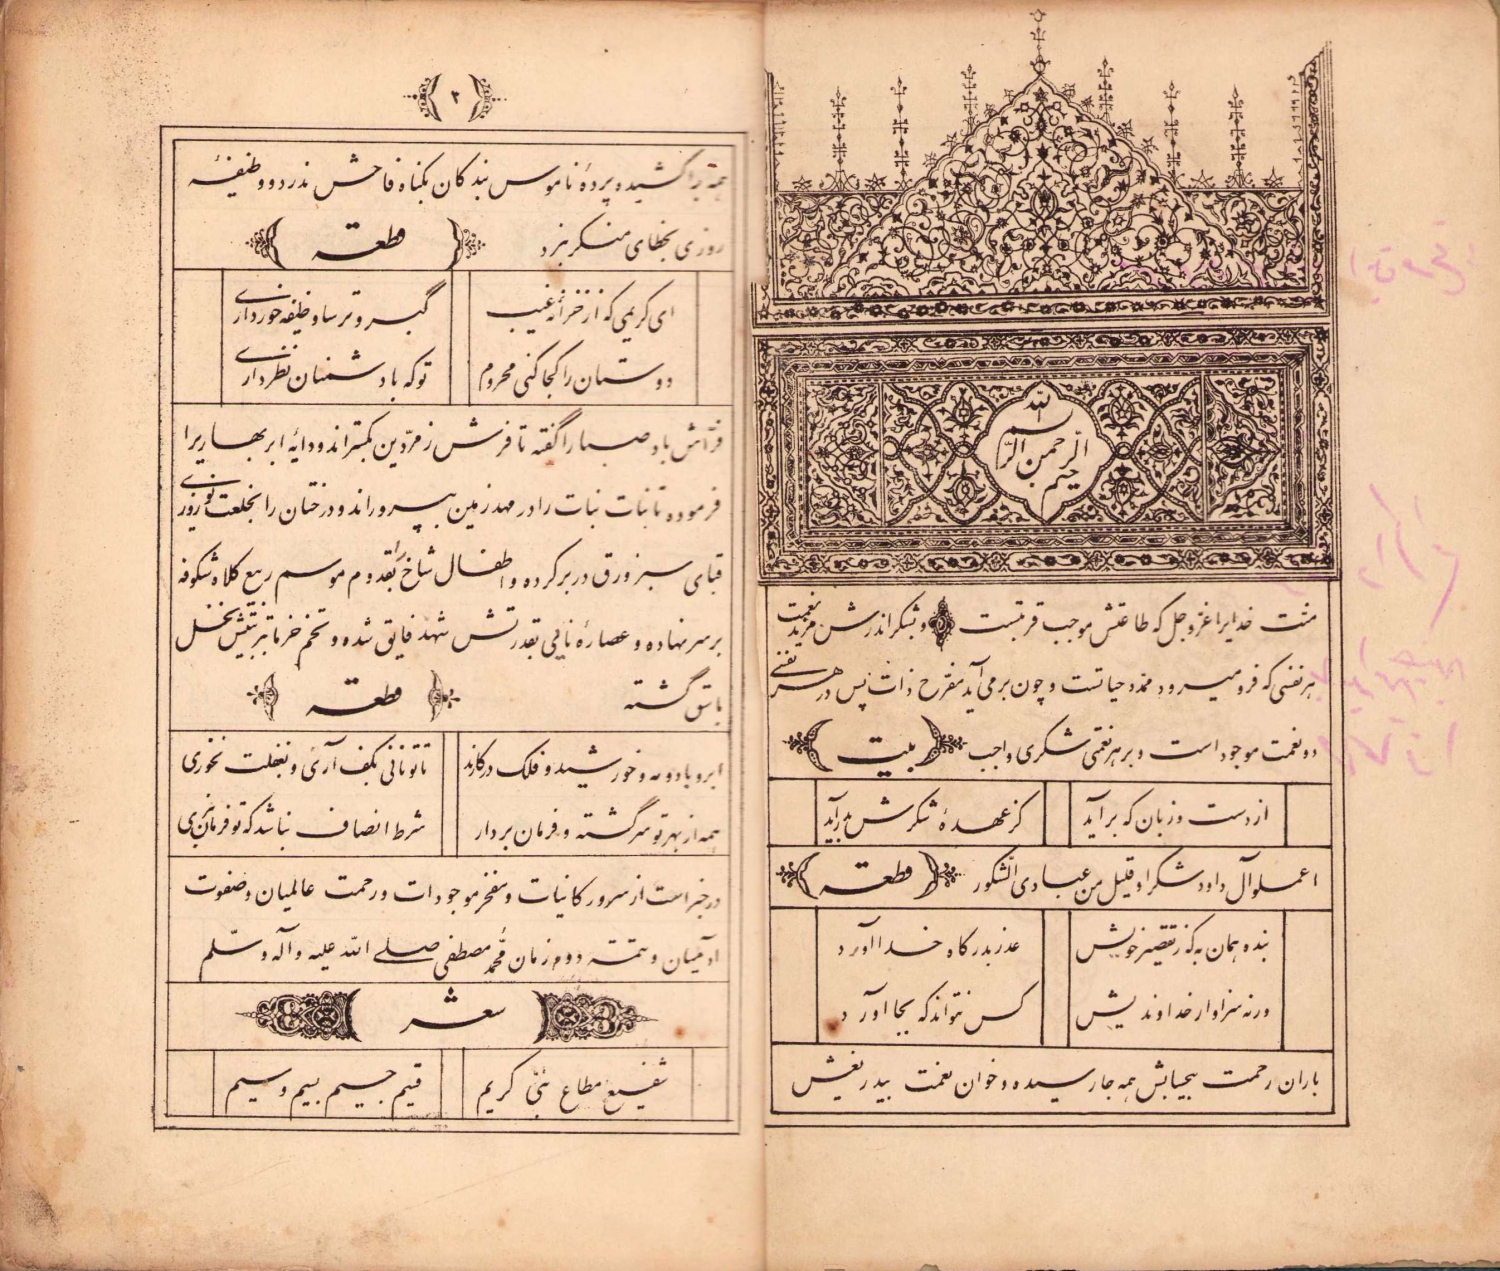 بسم الله الرحمن الرحیم
منت خدایرا عزوجل که طاعتش موجب قربتست و بشکر اندرش مزید نعمت
هر نفسی که فرو میرود ممد حیاتست و چون بر می آید مفرح ذات پس در هر نفسی
دو نعمت موجود است و بر هر نعمتی شکری واجب بیت
از دست و زبان که برآید کز عهدهٔ شکرش بدرآید
اعملوا آل داود شکرا و قلیل من عبادی الشکور قطعه
بنده همان به که ز تقصیر خویش عذر بدرگاه خدا آورد
ورنه سزاوار خداوندیش کس نتواند که بجا آورد
باران رحمت بیحسابش همه جا رسیده و خوان نعمت بیدریغش
۲
همه را کشیده و پردهٔ ناموس بندگان بگناه فاحش ندرد و وظیفهٔ
روزی بخطای منکر نبرد قطعه
ای کریمی که از خزانه غیب گبر و ترسا وظیفه خور داری
دوستان را کجا کنی محروم تو که با دشمنان نظر داری
فراش باد صبا را گفته تا فرش زمردین بگستراند و دایهٔ ابر بهاری را
فرموده تا بنات نبات را در مهد زمین بپروراند و درختان را بخلعت نوروزی
قبای سبز ورق در بر کرده و اطفال شاخ را بقدوم موسم ربیع کلاه شکوفه
بر سر نهاده و عصارهٔ نایی بقدرتش شهد فایق شده و تخم خرما بتربیتش نخل
باسق گشته قطعه
ابر و باد و مه و خورشید و فلک در کارند تا تو نانی بکف آری و بغفلت نخوری
همه از بهر تو سرگشته و فرمان بردار شرط انصاف نباشد که تو فرمان نبری
در خبر است از سرور کاینات و مفخر موجودات و رحمت عالمیان و صفوت
آدمیان و تتمهٔ دور زمان محمد مصطفی صلی الله علیه و آله و سلم
شعر
شفیع مطاع نبی کریم قسیم جسیم بسیم وسیم